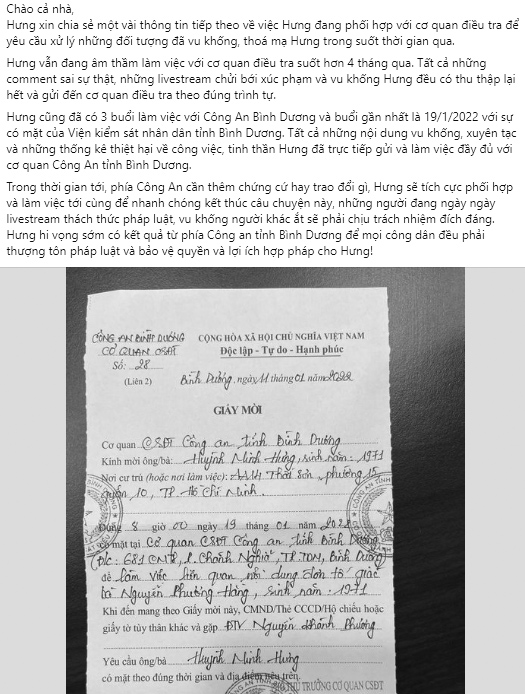 Chào cả nhà,
Hưng xin chia sẻ một vài thông tin tiếp theo về việc Hưng đang phối hợp với cơ quan điều tra để
yêu cầu xử lý những đối tượng đã vu khống, thoá mạ Hưng trong suốt thời gian qua.
Hưng vẫn đang âm thầm làm việc với cơ quan điều tra suốt hơn 4 tháng qua. Tất cả những
comment sai sự thật, những livestream chửi bới xúc phạm và vu khống Hưng đều có thu thập lại
hết và gửi đến cơ quan điều tra theo đúng trình tự.
Hưng cũng đã có 3 buổi làm việc với Công An Bình Dương và buổi gần nhất là 19/1/2022 với sự
có mặt của Viện kiểm sát nhân dân tỉnh Bình Dương. Tất cả những nội dung vu khống, xuyên tạc
và những thống kê thiệt hại về công việc, tinh thần Hưng đã trực tiếp gửi và làm việc đầy đủ với
cơ quan Công An tỉnh Bình Dương.
Trong thời gian tới, phía Công An cần thêm chứng cứ hay trao đổi gì, Hưng sẽ tích cực phối hợp
và làm việc tới cùng để nhanh chóng kết thúc câu chuyện này, những người đang ngày ngày
livestream thách thức pháp luật, vu khống người khác ắt sẽ phải chịu trách nhiệm đích đáng.
Hưng hi vọng sớm có kết quả từ phía Công an tỉnh Bình Dương để mọi công dân đều phải
thượng tôn pháp luật và bảo vệ quyền và lợi ích hợp pháp cho Hưng!
CÔNG AN BÌNH DƯƠNG CỘNG HÒA XÃ HỘI CHỦ NGHĨA VIỆT NAM
CƠ QUAN CSĐT Độc lập - Tự do - Hạnh phúc
Số: 28
(Liên 2) Bình Dương, ngày 11 tháng 01 năm 2022
GIẤY MỜI
Cơ quan CSĐT Công an tỉnh Bình Dương
Kính mời ông/bà: Huỳnh Minh Hưng, sinh năm: 1971
Nơi cư trú (hoặc nơi làm việc): Thái Sơn, phường 15,
Quận 10, TP. Hồ Chí Minh.
Đúng 8 giờ 00 ngày 19 tháng 01 năm 2022
có mặt tại Cơ quan CSĐT Công an tỉnh Bình Dương
Đ/c: 681 CMT8, P. Chánh Nghĩa, TP.TDM, Bình Dương
để làm việc liên quan nội dung đơn tố giác
bà Nguyễn Phương Hằng, sinh năm: 1971
Khi đến mang theo Giấy mời này, CMND/Thẻ CCCD/Hộ chiếu hoặc
giấy tờ tùy thân khác và gặp ĐTV Nguyễn Khánh Phương
Yêu cầu ông/bà Huỳnh Minh Hưng
có mặt theo đúng thời gian và địa điểm nêu trên.
THỦ TRƯỞNG CƠ QUAN CSĐT